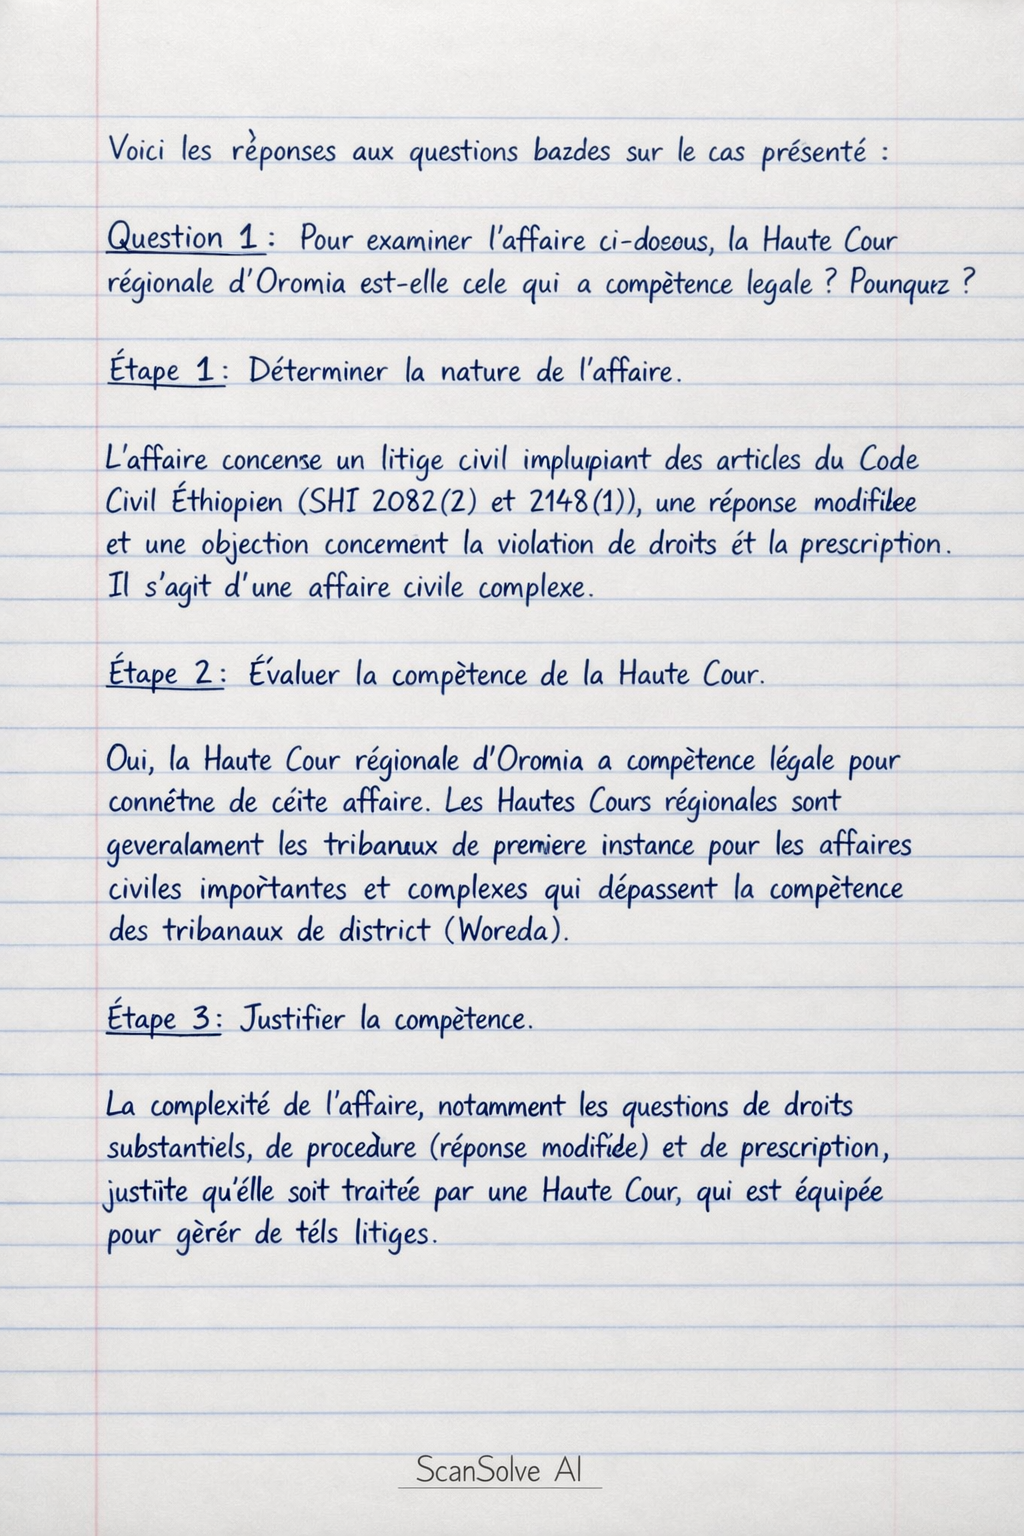 Voici les rèponses aux questions bazdes sur le cas présenté :
Question 1 : Pour examiner l'affaire ci-doeous, la Haute Cour
régionale d'Oromia est-elle cele qui a compètence legale ? Pounquız ?
Étape 1 : Déterminer la nature de l'affaire.
L'affaire concense un litige civil impluıpiant des articles du Code
Civil Éthiopien (SHI 2082(2) et 2148(1)), une réponse modifilee
et une objection concement la violation de droits ét la prescription.
Il s'agit d'une affaire civile complexe.
Étape 2 : Évaluer la compètence de la Haute Cour.
Oui, la Haute Cour régionale d'Oromia a compètence légale pour
connétne de céite affaire. Les Hautes Cours régionales sont
geveralament les tribanuux de premiere instance pour les affaires
civiles impor̀tantes et complexes qui dépassent la compètence
des tribanaux de district (Woreda).
Étape 3 : Justifier la compètence.
La complexité de l'affaire, notamment les questions de droits
substantiels, de procedure (réponse modifide) et de prescription,
justiite qu'élle soit traitée par une Haute Cour, qui est équipée
pour gèrér de téls litiges.
ScanSolve AI